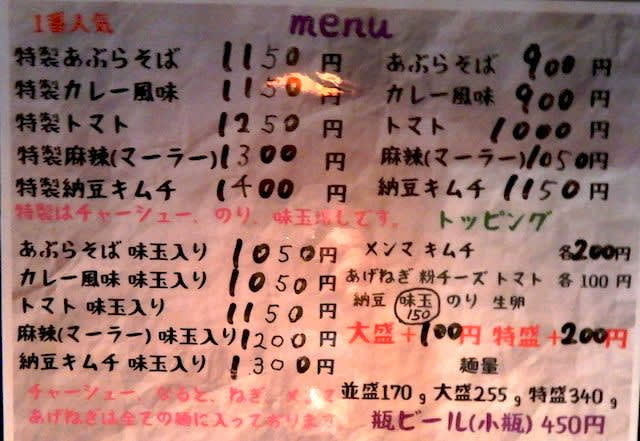 menu
1番人気
特製あぶらそば 1150円
特製カレー風味 1150円
特製トマト 1250円
特製麻辣(マーラー) 1300円
特製納豆キムチ 1400円
特製はチャーシュー、のり、味玉増しです。
あぶらそば 900円
カレー風味 900円
トマト 1000円
麻辣(マーラー) 1050円
納豆キムチ 1150円
あぶらそば 味玉入り 1050円
カレー風味 味玉入り 1050円
トマト 味玉入り 1150円
麻辣(マーラー) 味玉入り 1200円
納豆キムチ 味玉入り 1300円
チャーシュー、なると、ねぎ、メンマ
あげねぎは全ての麺に入っております
トッピング
メンマ キムチ 各200円
あげねぎ 粉チーズ トマト 各100円
納豆 味玉 のり 生卵
150
大盛+100円 特盛+200円
麺量
並盛170g 大盛255g 特盛340g
瓶ビール(小瓶) 450円